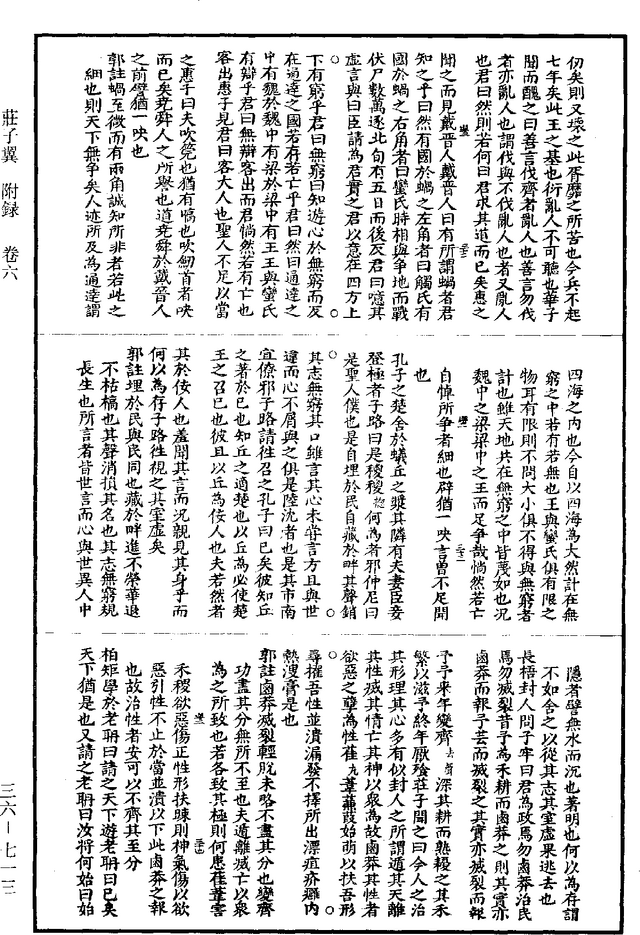 仞矣則又壞之此胥靡之所苦也今兵不起
七年矣此王之基也衍亂人不可聽也華子
聞而醜之曰善言伐齊者亂人也善言勿伐
者亦亂人也謂伐與不伐亂人也者又亂人
也君曰然則若何曰君求其道而已矣惠之
聞之而見戴晉人戴晉人曰有所謂蝸者君
知之乎曰然有國於蝸之左角者曰觸氏有
國於蝸之右角者曰蠻氏時相與爭地而戰
伏尸數萬逐北旬有五日而後反君曰噫其
虛言與曰臣請為君實之君以意在四方上
下有窮乎君曰無窮曰知遊心於無窮而反
在通達之國若存若亡乎君曰然曰通達之
中有魏於魏中有梁於梁中有王王與蠻氏
有辯乎君曰無辯客出而君惝然若有亡也
客出惠子見君曰客大人也聖人不足以當
之惠子曰夫吹筦也猶有嗃也吹劒首者吷
而已矣堯舜人之所譽也道堯舜於戴晉人
之前譬猶一吷也
郭註蝸至微而有兩角誠知所非者若此之
細也則天下無爭矣人迹所及為通達謂
四海之內也今自以四海為大然計在無
窮之中若有若無也王與蠻氏俱有限之
物耳有限則不問大小俱不得與無窮者
計也雖天地共在無窮之中皆蔑如也況
魏中之梁梁中之王而足爭哉惝然若亡
自悼所爭者細也辟猶一吷言曾不足聞
也
孔子之楚舍於蟻丘之漿其隣有夫妻臣妾
登極者子路曰是稯稯何為者邪仲尼曰
是聖人僕也是自埋於民自藏於畔其聲銷
其志無窮其口雖言其心未嘗言方且與世
違而心不屑與之俱是陸沈者也是其市南
宜僚邪子路請往召之孔子曰已矣彼知丘
之著於已也知丘之適楚也以丘為必使楚
王之召已也彼且以丘為佞人也夫若然者
其於佞人也羞聞其言而況親見其身乎而
何以為存子路往視之其室虛矣
郭註埋於民與民同也藏於畔進不榮華退
不枯槁也其聲消損其名也其志無窮規
長生也所言者皆世言而心與世異人中
隱者譬無水而沉也著明也何以為存謂
不如舍之以從其志其室虛果逃去也
長梧封人問子牢曰君為政焉勿鹵莽治民
焉勿滅裂昔予為禾耕而鹵莽之則其實亦
鹵莽而報予芸而滅裂之其實亦滅裂而報
予予來年變齊深其耕而熟耰之其禾
繁以滋予終年厭飱莊子聞之曰今人之治
其形理其心多有似封人之所謂遁其天離
其性滅其情亡其神以衆為故鹵莽其性者
欲惡之孽為性萑葦蒹葭始萌以扶吾形
尋擢吾性並潰漏發不擇所出漂疽疥癰內
熱溲膏是也
郭註鹵莽滅裂輕脫未略不盡其分也變齊
功盡其分無所不至也夫遁離滅亡以衆
為之所致也若各致其極則何患萑葦害
禾稷欲惡傷正性形扶疎則神氣傷以欲
惡引性不止於當並潰以下此鹵莽之報
也故治性者安可以不齊其至分
柏矩學於老聃曰請之天下遊老聃曰已矣
天下猶是也又請之老聃曰汝將何始曰始
莊子翼　附錄　卷六
三六—七一三